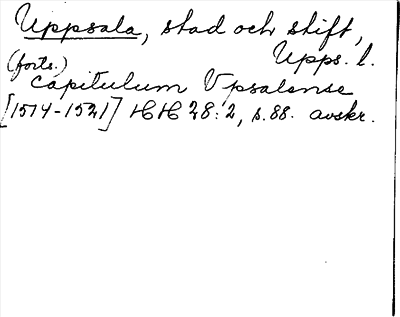 Uppsala, stad och stift,
Upps. l.
(forts.)
capitulum Vpsalense
[1514-1521] HH 28:2, s.88. avskr.